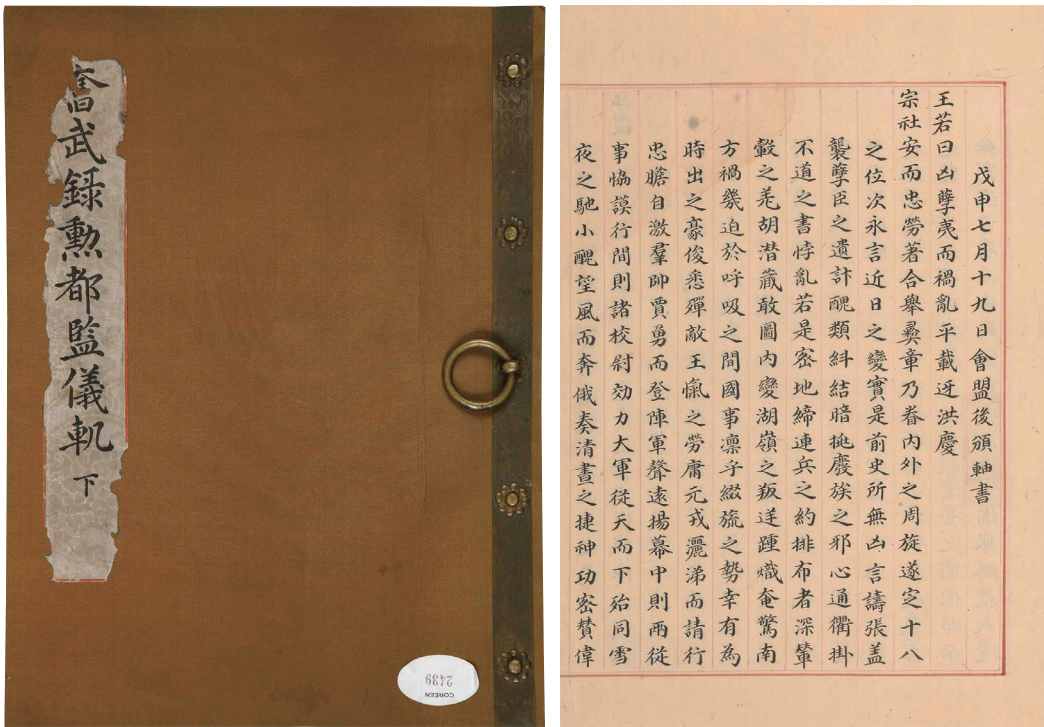 奮武錄勳都監儀軌 下
CORÉEN
2439
戊申七月十九日會盟後頒軸書
王若曰凶孽夷而禍亂平載迓洪慶
宗社安而忠勞著合舉彝章乃眷內外之周旋遂定十八
之位次永言近日之變實是前史所無凶言譸張盖
襲孽臣之遺計醜類糾結暗挑廢族之邪心通衢掛
不道之書悖亂若是密地締連兵之約排布者深輦
轂之羌胡潛藏敢圖內變湖嶺之叛逆踵熾奄驚南
方禍幾迫於呼吸之間國事凛乎綴旒之勢幸有為
時出之豪俊悉殫敵王愾之勞庸元戎灑涕而請行
忠膽自激羣帥賈勇而登陣軍聲遠揚幕中則兩從
事恊謨行間則諸校尉効力大軍從天而下殆同雪
夜之馳小醜望風而奔俄奏清晝之捷神功密賛偉